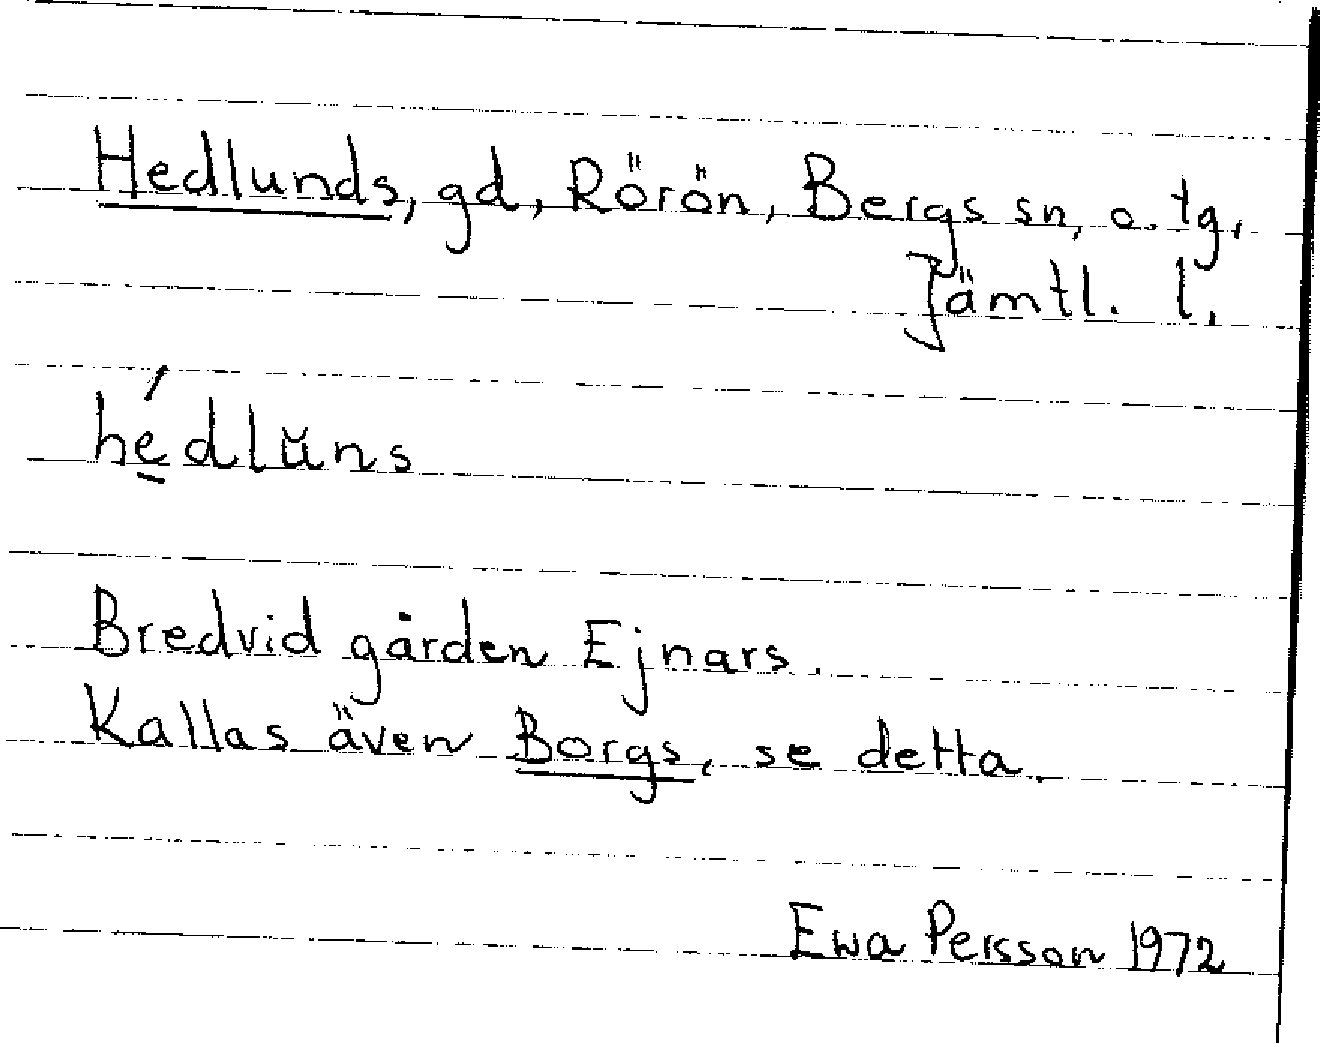 Hedlunds, gd, Rörön, Bergs sn, o. tg.
Jämtl. l.
hé̱dlŭns
Bredvid gården Ejnars.
Kallas även Borgs, se detta.
Ewa Persson 1972